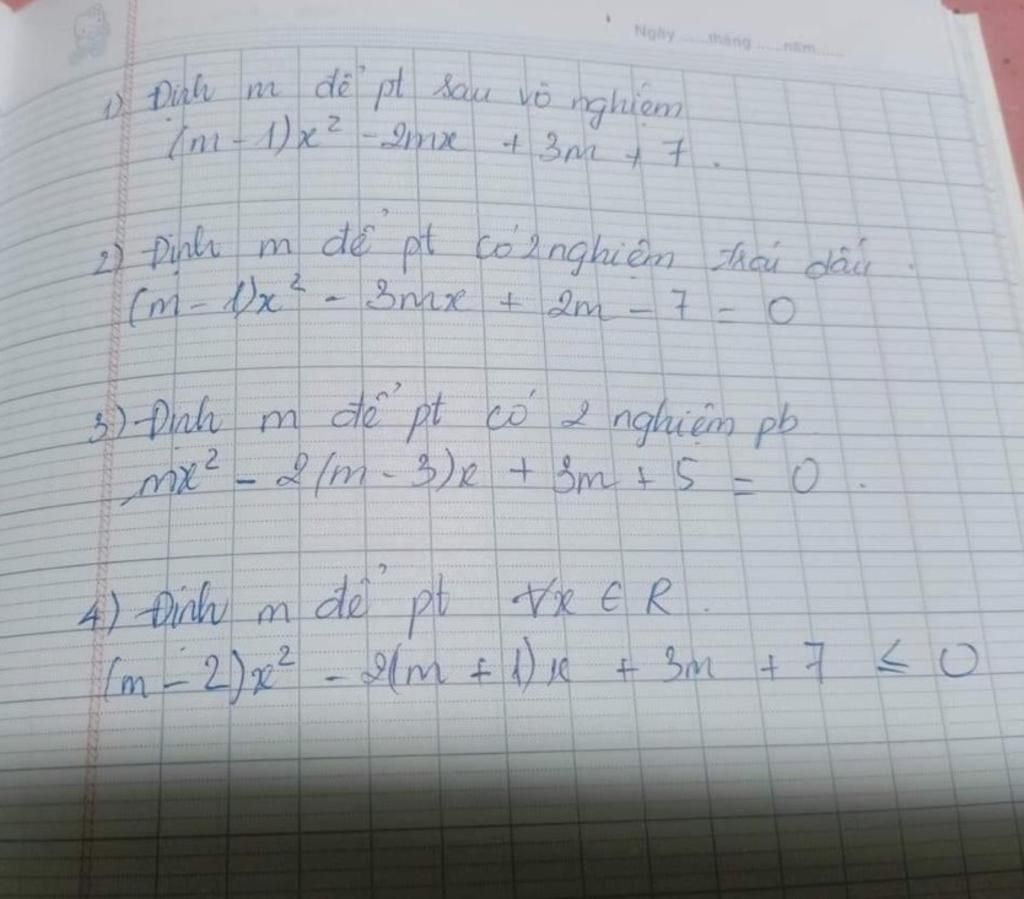 Ngày ......tháng ......năm......
1) Định m để pt sau vô nghiệm
(m - 1)x² - 2mx + 3m + 7 .
2) Định m để pt có 2 nghiệm trái dấu .
(m - 1)x² - 3mx + 2m - 7 = 0
3) Định m để pt có 2 nghiệm pb
mx² - 2(m - 3)x + 3m + 5 = 0 .
4) Định m để pt ∀x ∈ R .
(m - 2)x² - 2(m + 1)x + 3m + 7 ≤ 0